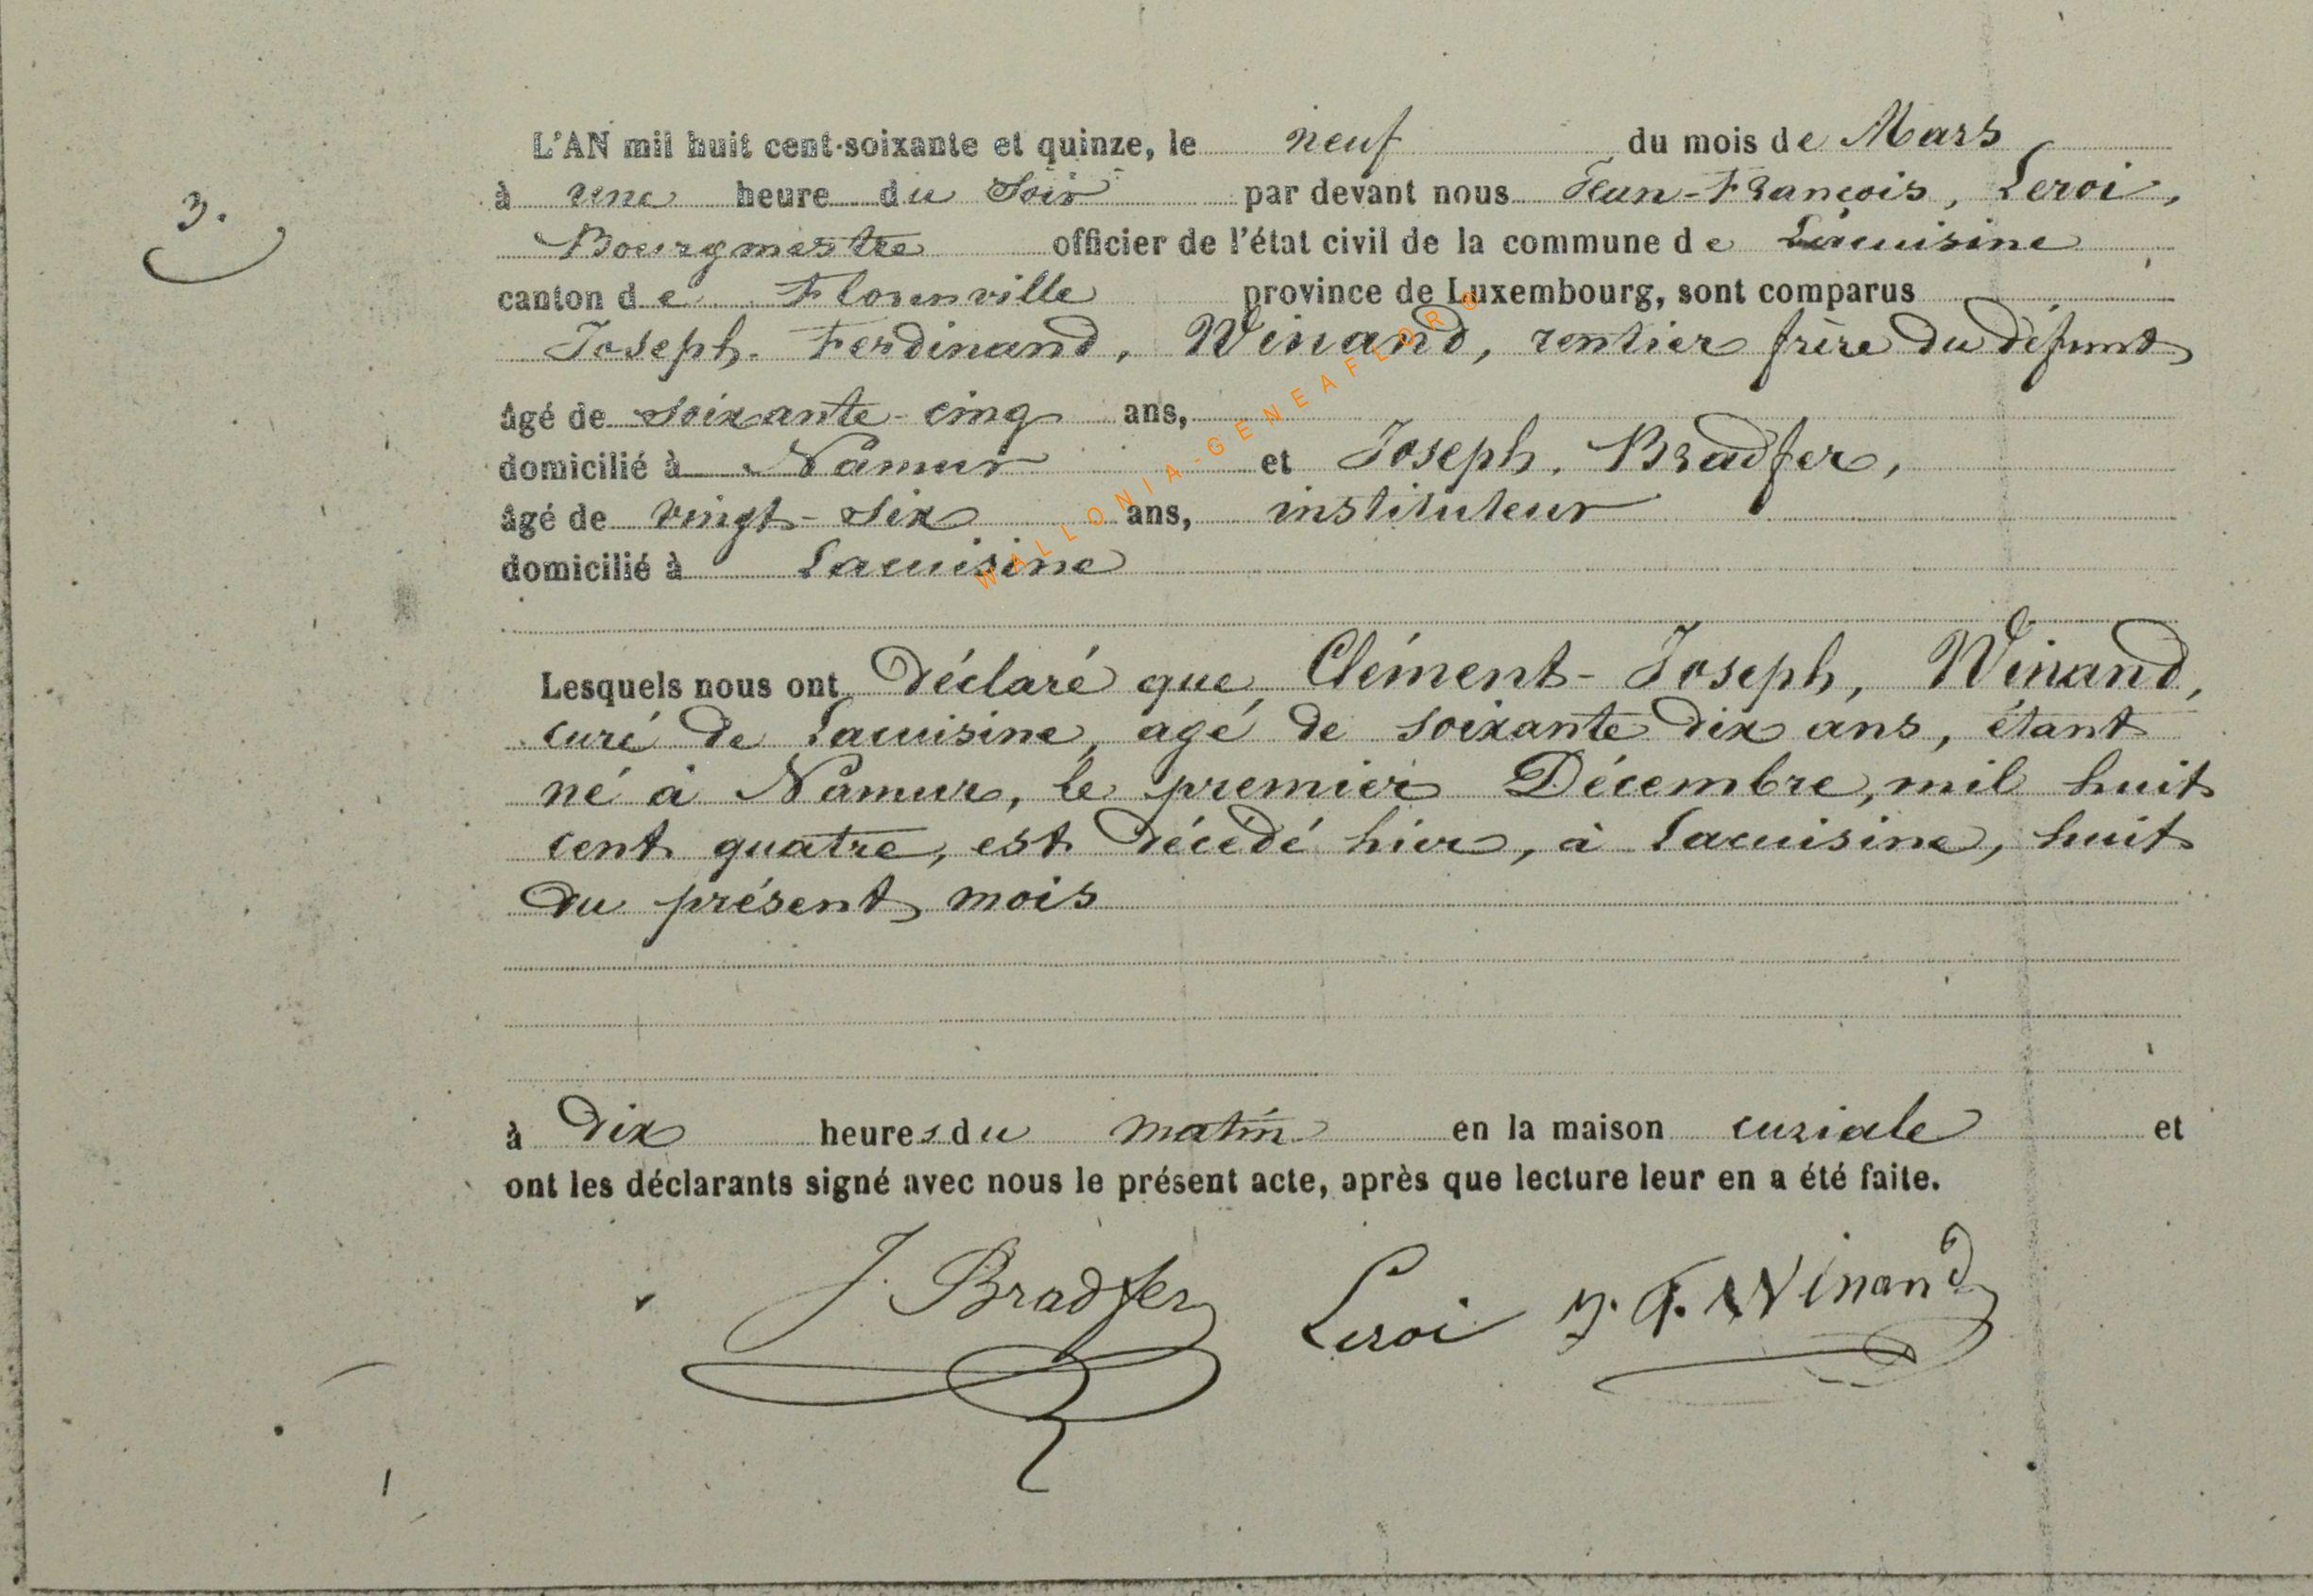 3.
L'AN mil huit cent-soixante et quinze, le neuf du mois de Mars
à une heure du Soir par devant nous Jean-François, Leroi,
Bourgmestre officier de l'état civil de la commune de Lacuisine
canton de Florenville province de Luxembourg, sont comparus
Joseph-Ferdinand, Winand, rentier frère du défunt
âgé de soixante-cinq ans,
domicilié à Namur et Joseph, Bradfer,
âgé de vingt-six ans, instituteur
domicilié à Lacuisine
Lesquels nous ont déclaré que Clément-Joseph, Winand,
curé de Lacuisine, agé de soixante dix ans, étant
né à Namur, le premier Décembre, mil huit
cent quatre, est décédé hier, à Lacuisine, huit
du présent mois
à Dix heures du matin en la maison curiale et
ont les déclarants signé avec nous le présent acte, après que lecture leur en a été faite.
J. Bradfer Leroi J. F. Winand
WALLONIA-GENEAFLORG